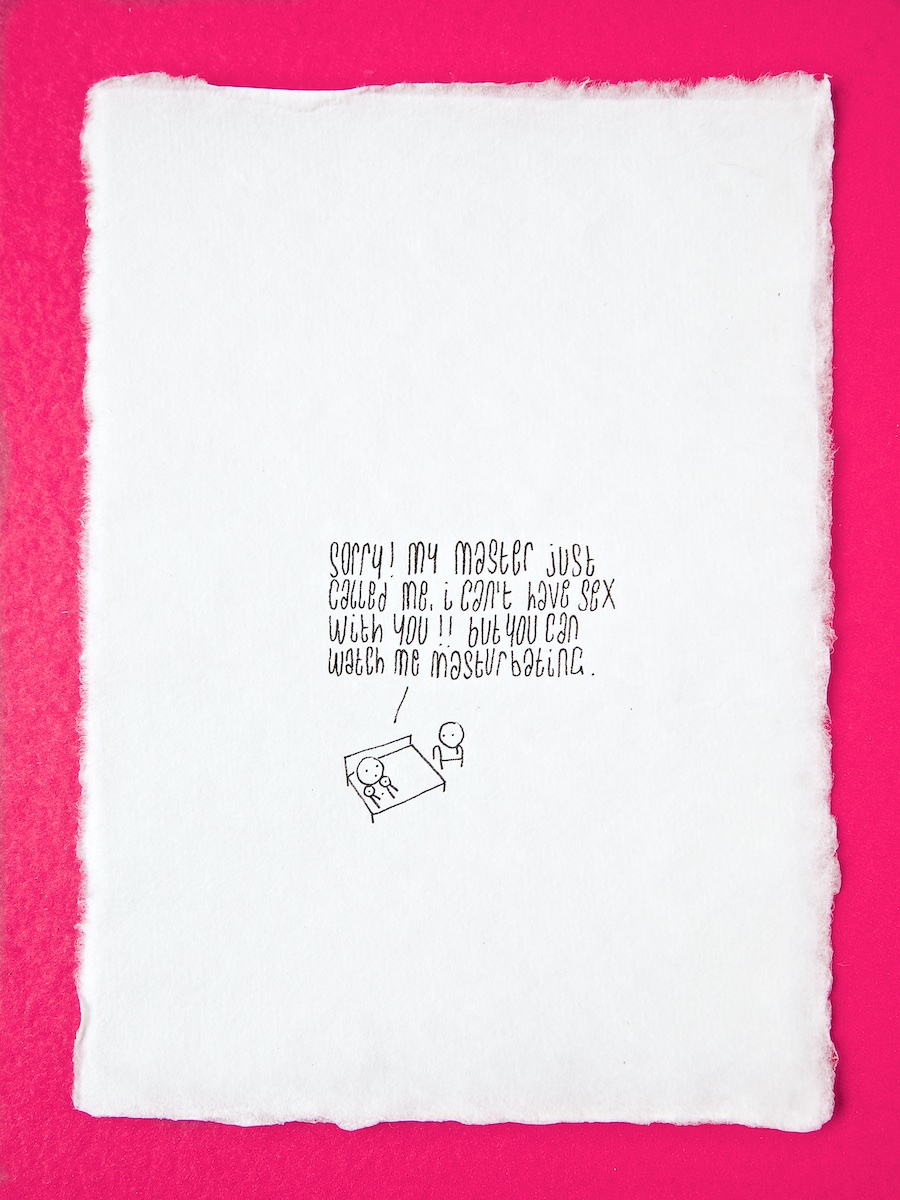 sorry! my master just
called me. i can't have sex
with you !! but you can
watch me masturbating.